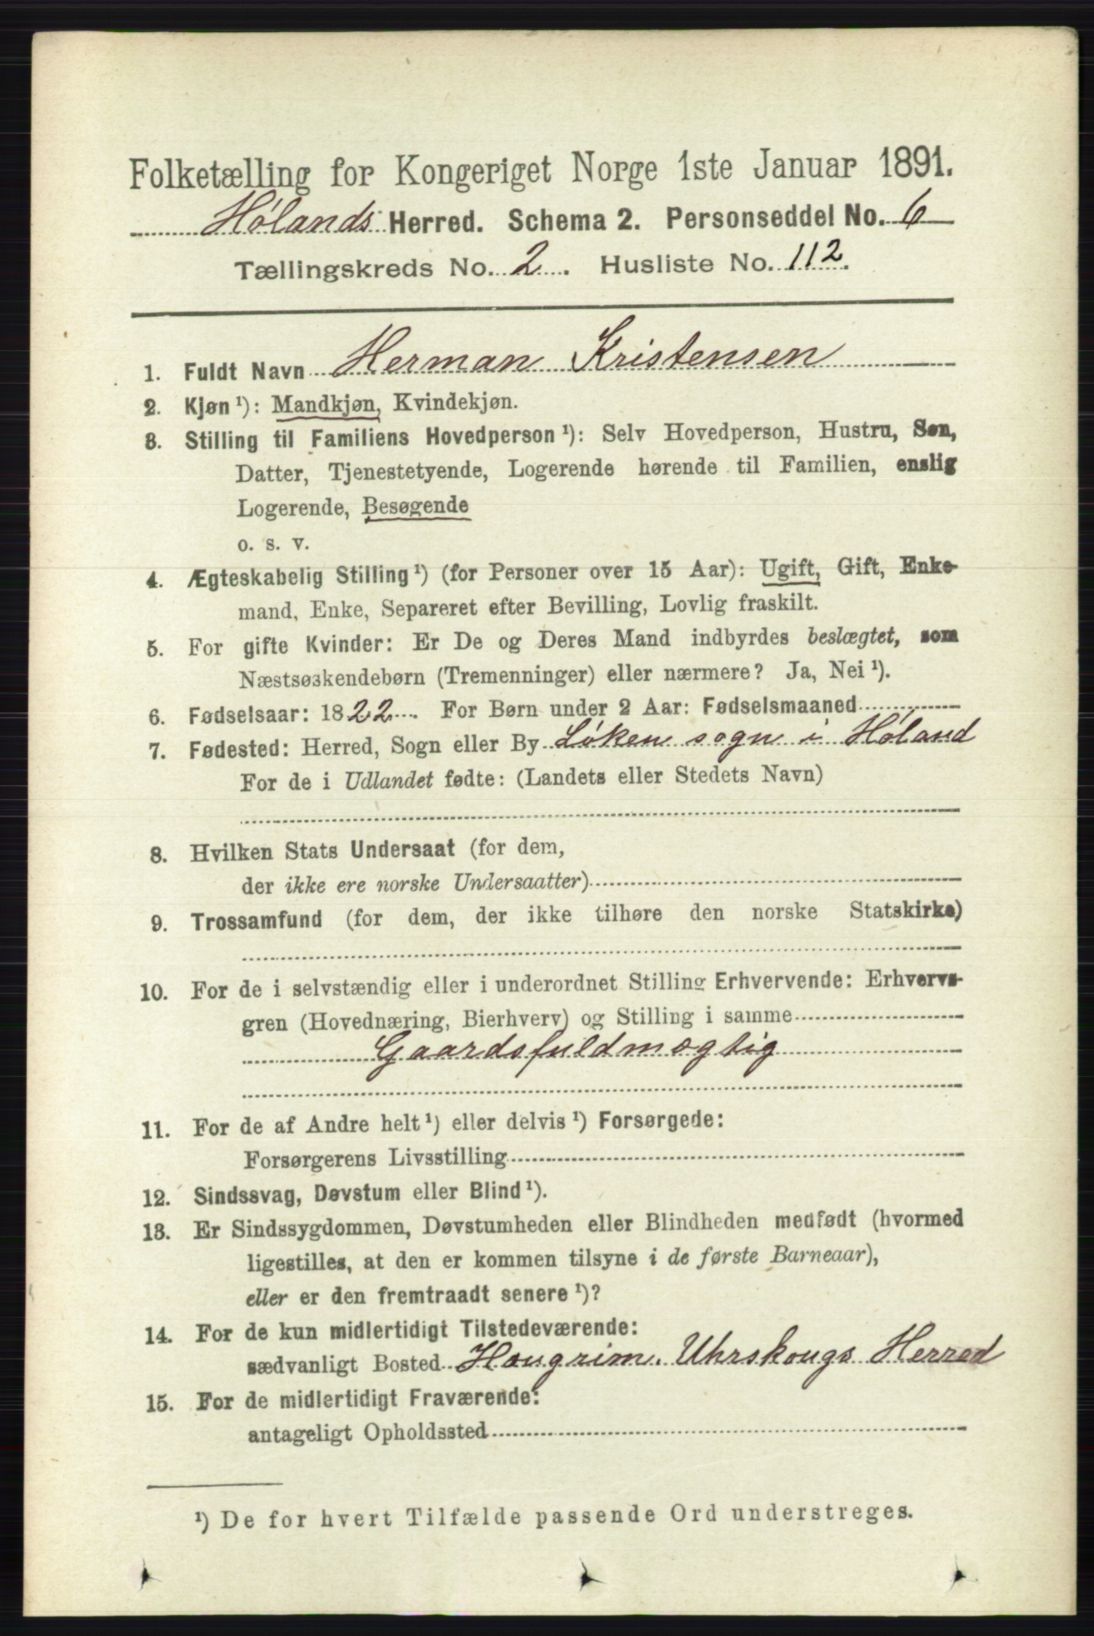 Folketælling for Kongeriget Norge 1ste Januar 1891.
Hølands Herred. Schema 2. Personseddel No. 6
Tællingskreds No. 2. Husliste No. 112.
1. Fuldt Navn Herman Kristensen
2. Kjøn ¹): Mandkjøn, Kvindekjøn.
3. Stilling til Familiens Hovedperson ¹): Selv Hovedperson, Hustru, Søn,
Datter, Tjenestetyende, Logerende hørende til Familien, enslig
Logerende, Besøgende
o. s. v.
4. Ægteskabelig Stilling ¹) (for Personer over 15 Aar): Ugift, Gift, Enke-
mand, Enke, Separeret efter Bevilling, Lovlig fraskilt.
5. For gifte Kvinder: Er De og Deres Mand indbyrdes beslægtet, som
Næstsøskendebørn (Tremenninger) eller nærmere? Ja, Nei ¹).
6. Fødselsaar: 1822. For Børn under 2 Aar: Fødselsmaaned
7. Fødested: Herred, Sogn eller By Løken sogn i Høland
For de i Udlandet fødte: (Landets eller Stedets Navn)
8. Hvilken Stats Undersaat (for dem,
der ikke ere norske Undersaatter)
9. Trossamfund (for dem, der ikke tilhøre den norske Statskirke)
10. For de i selvstændig eller i underordnet Stilling Erhvervende: Erhvervs-
gren (Hovednæring, Bierhverv) og Stilling i samme
Gaardsfuldmægtig
11. For de af Andre helt ¹) eller delvis ¹) Forsørgede:
Forsørgerens Livsstilling
12. Sindssvag, Døvstum eller Blind ¹).
13. Er Sindssygdommen, Døvstumheden eller Blindheden medfødt (hvormed
ligestilles, at den er kommen tilsyne i de første Barneaar),
eller er den fremtraadt senere ¹)?
14. For de kun midlertidigt Tilstedeværende:
sædvanligt Bosted Haugrim. Uhrskougs Herred
15. For de midlertidigt Fraværende:
antageligt Opholdssted
¹) De for hvert Tilfælde passende Ord understreges.